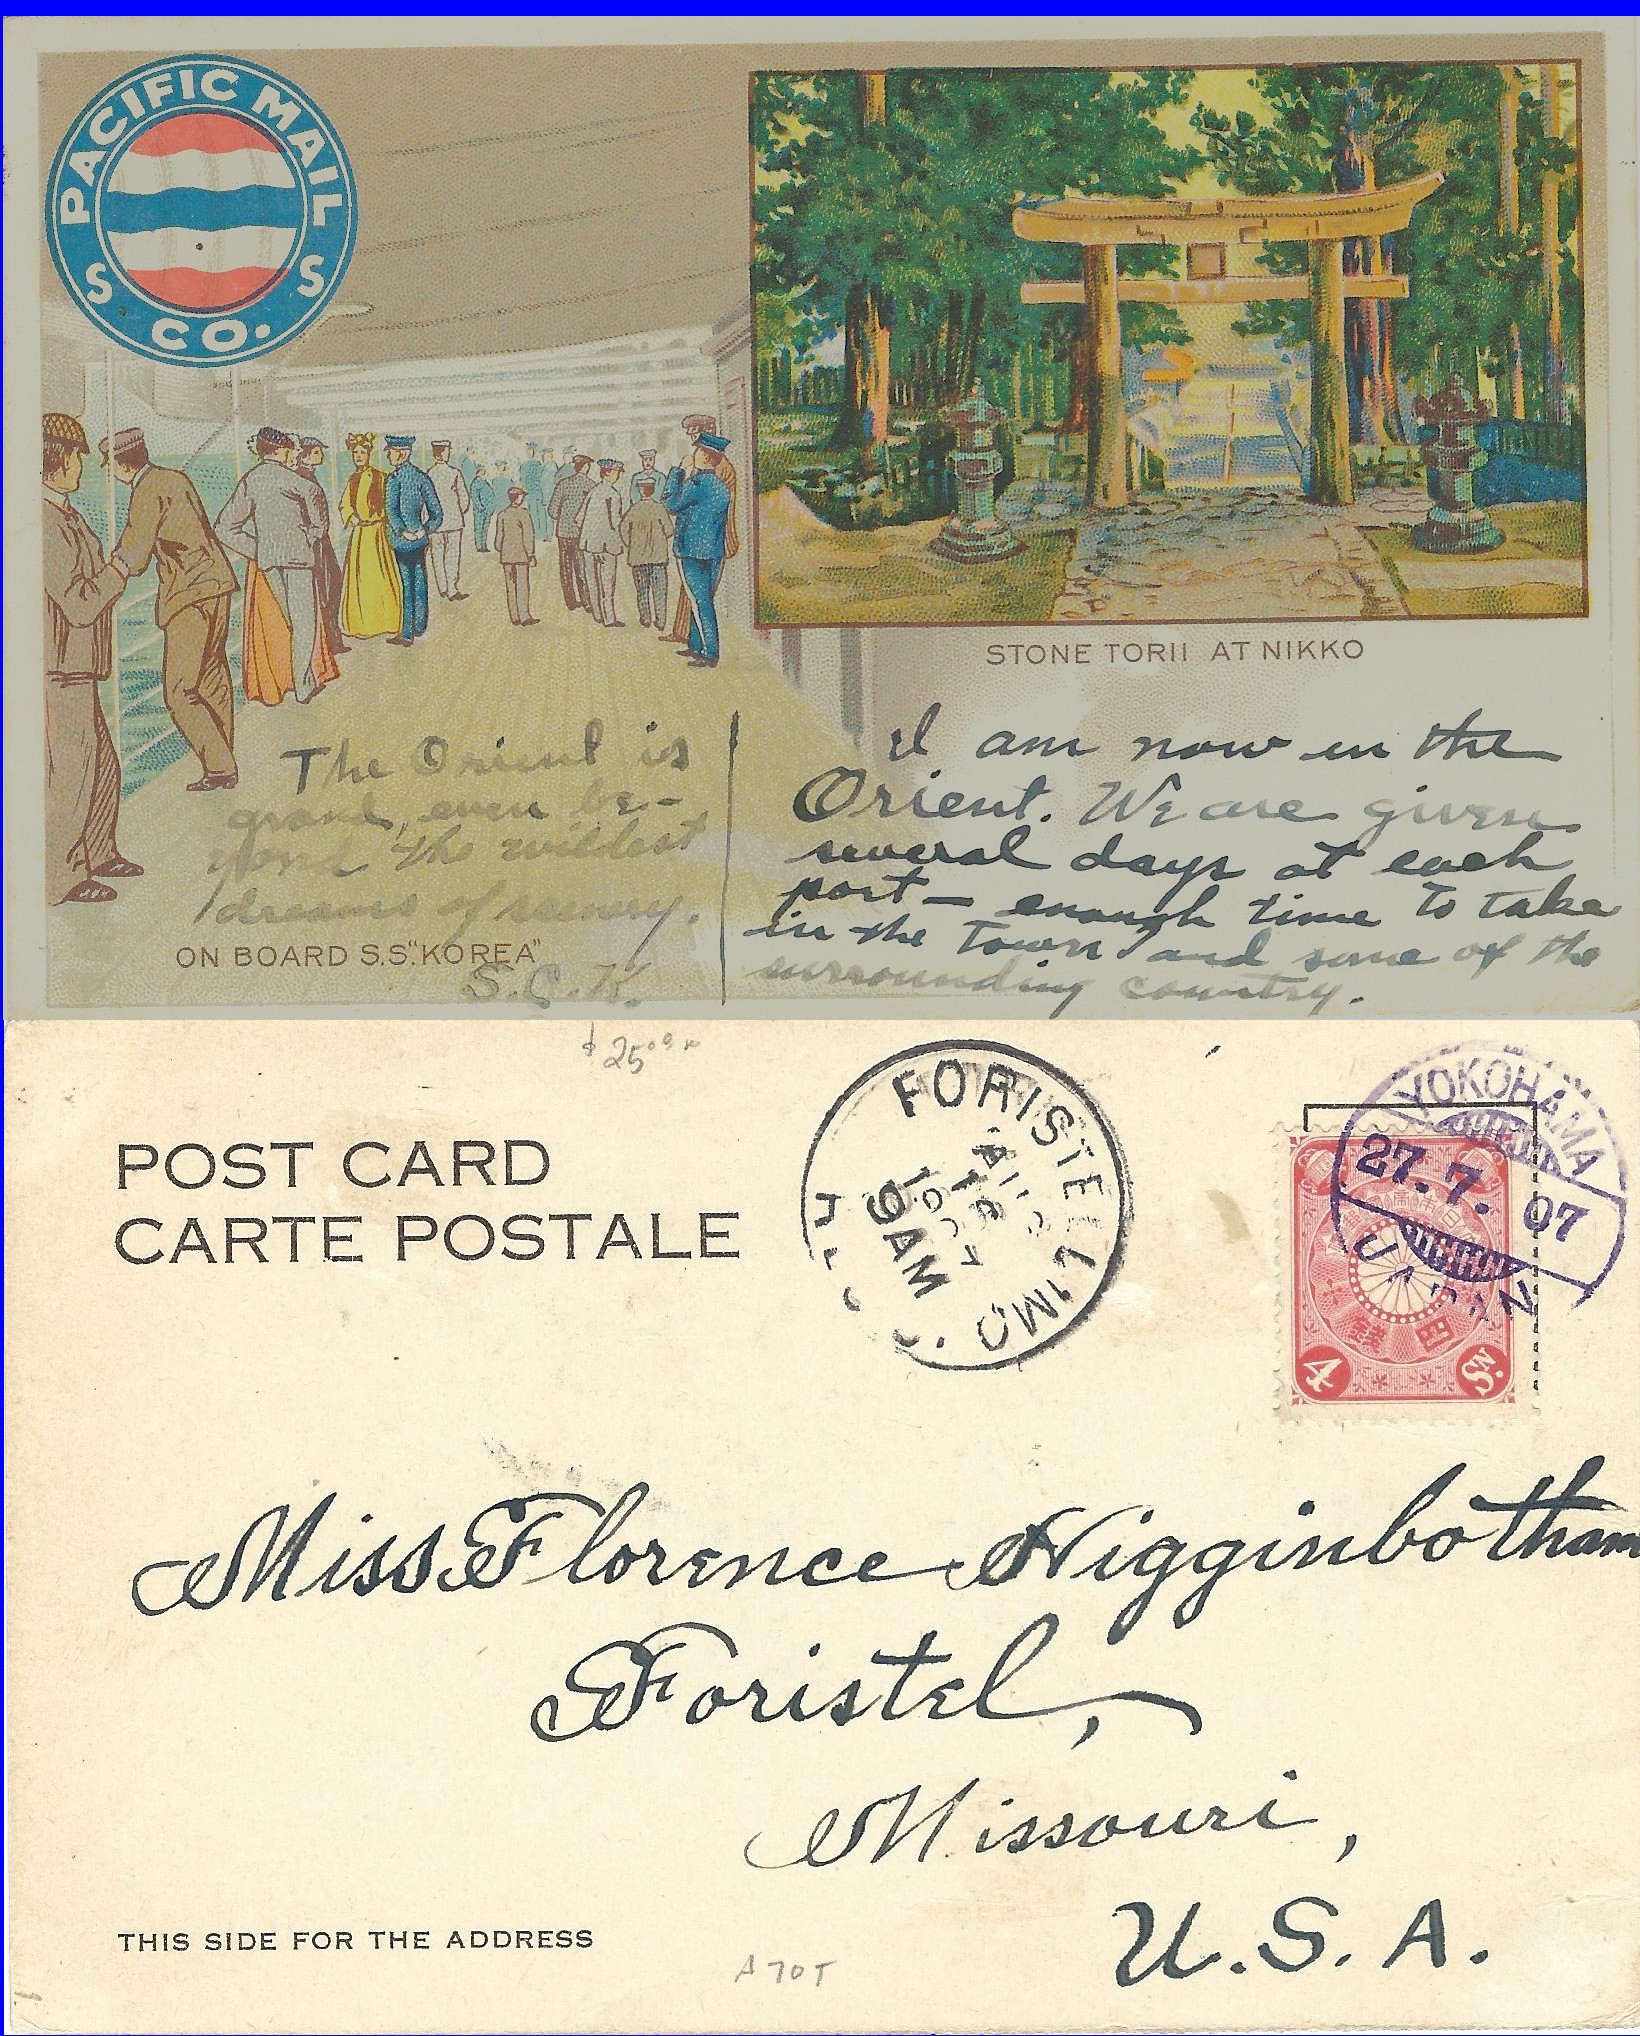 PACIFIC MAIL
S S
CO.
STONE TORII AT NIKKO
The Orient is
grand, even be-
yond the wildest
dreams of scenery.
ON BOARD S.S."KOREA"
S.C.K.
I am now in the
Orient. We are given
several days at each
port — enough time to take
in the town and some of the
surrounding country.
$25.00
POST CARD
CARTE POSTALE
FORISTELL MO
AUG
16
1907
9AM
YOKOHAMA
27.7.07
JAPAN
四
錢
4 Sn.
Miss Florence Higginbotham
Foristel,
Missouri,
U.S.A.
THIS SIDE FOR THE ADDRESS
A70T